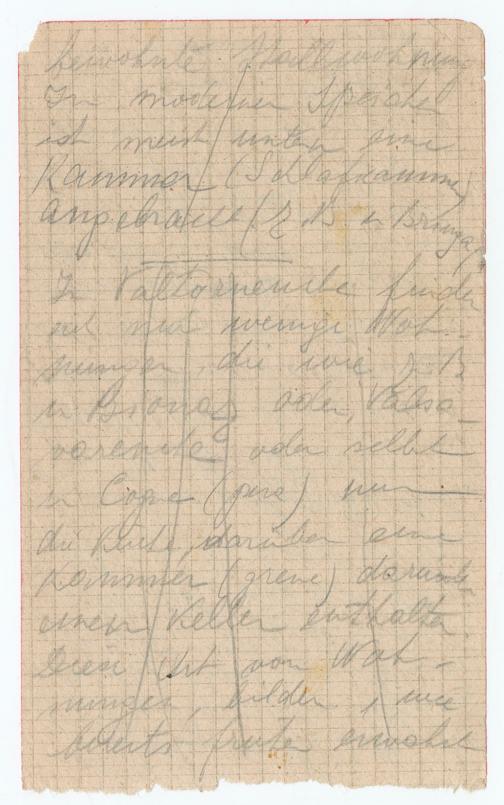 bewohnte Stallwohnung
In moderner Speicher
ist meist unten eine
Kammer (Schlafkammer)
angebracht (z B in Brusga
In Valtornenche findet
sich nur wenige Woh-
nungen, die wie z B
in Bionaz oder Valsa-
varenche oder selbst
in Cogne (pera) nur
die Küche, darüber eine
Kammer (grene) darunter
einen Keller enthalten
Diese Art von Woh-
nungen, bilden, wie
bereits früher erwähnt